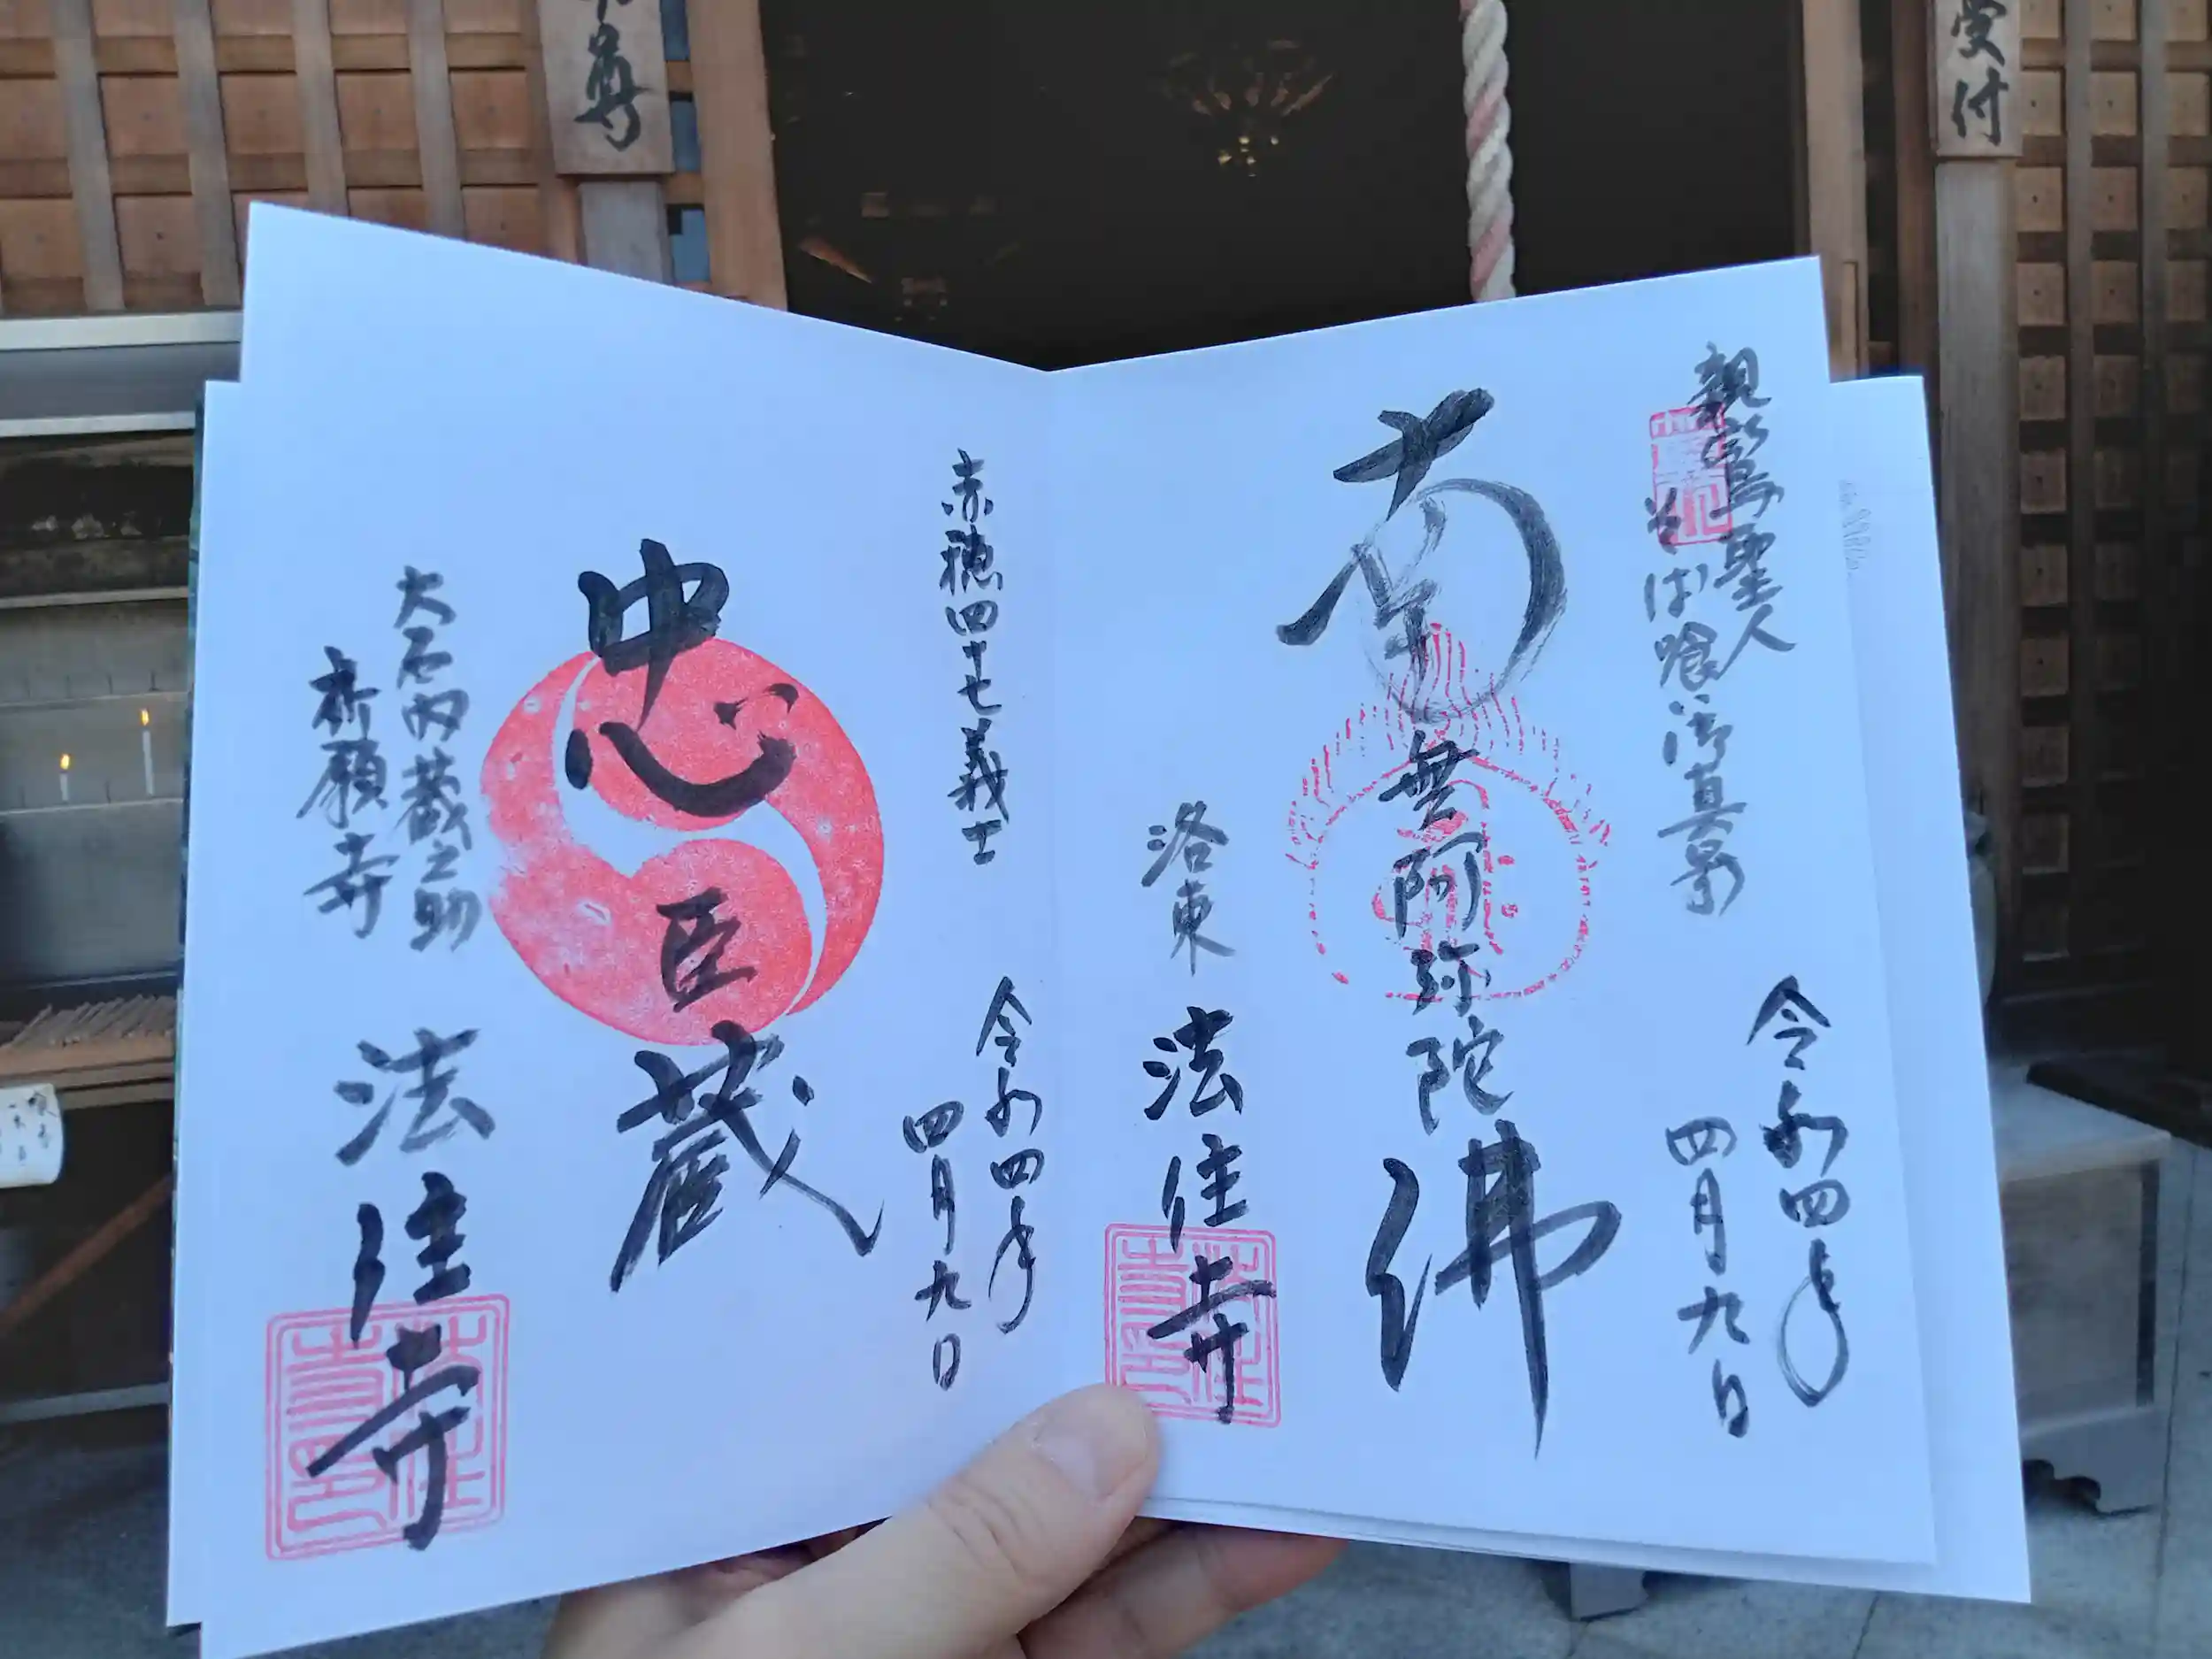 尊
受付
親鸞聖人
そば喰御真影
南無阿弥陀佛
令和四年
四月九日
洛東
法住寺
赤穂四十七義士
忠臣蔵
令和四年
四月九日
大石内蔵之助
祈願寺
法住寺